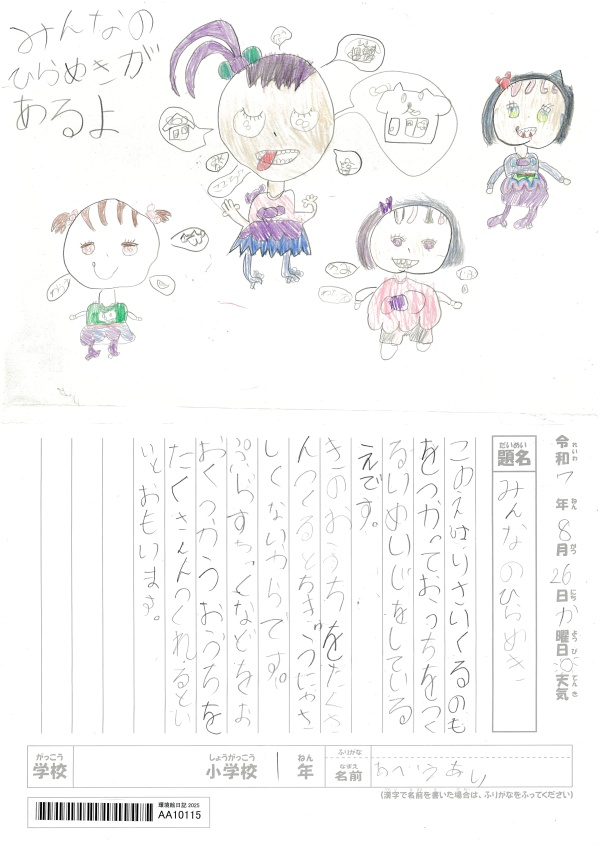 みんなの
ひらめきが
あるよ
令和7年8月26日か曜日天気
れいわ ねん がつ にち ようび てんき
だいめい
題名
みんなのひらめき
このえは、りさいくるのも
をつかっておうちをつく
るいめいじをしている
えです。
きのおうちをたくさ
んつくるとちきゅうにやさ
しくないからです。
ぷらすちっくなどをお
おくつかうおうちを
たくさんつくれるとい
いとおもいます。
がっこう
学校
しょうがっこう
小学校
1
ねん
年
ふりがな
なまえ
名前
あい
(漢字で名前を書いた場合は、ふりがなをふってください)
環境絵日記 2025
AA10115